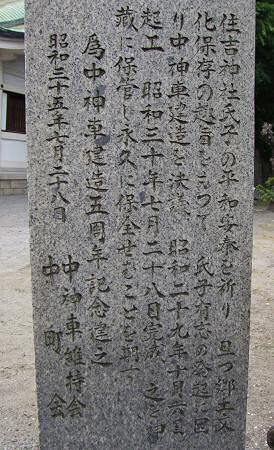 住吉神社氏子の平和安泰を祈り 且つ郷土文
化保存の趣旨をもつて 氏子有志の発起に因
り中神車建造を決議 昭和二十九年十月六日
起工 昭和三十年七月二十八日完成 之を中
蔵に保管し永久に保全せむことを期す
為中神車建造五周年記念建之
昭和三十五年七月二十八日
中神車維持会
中町会